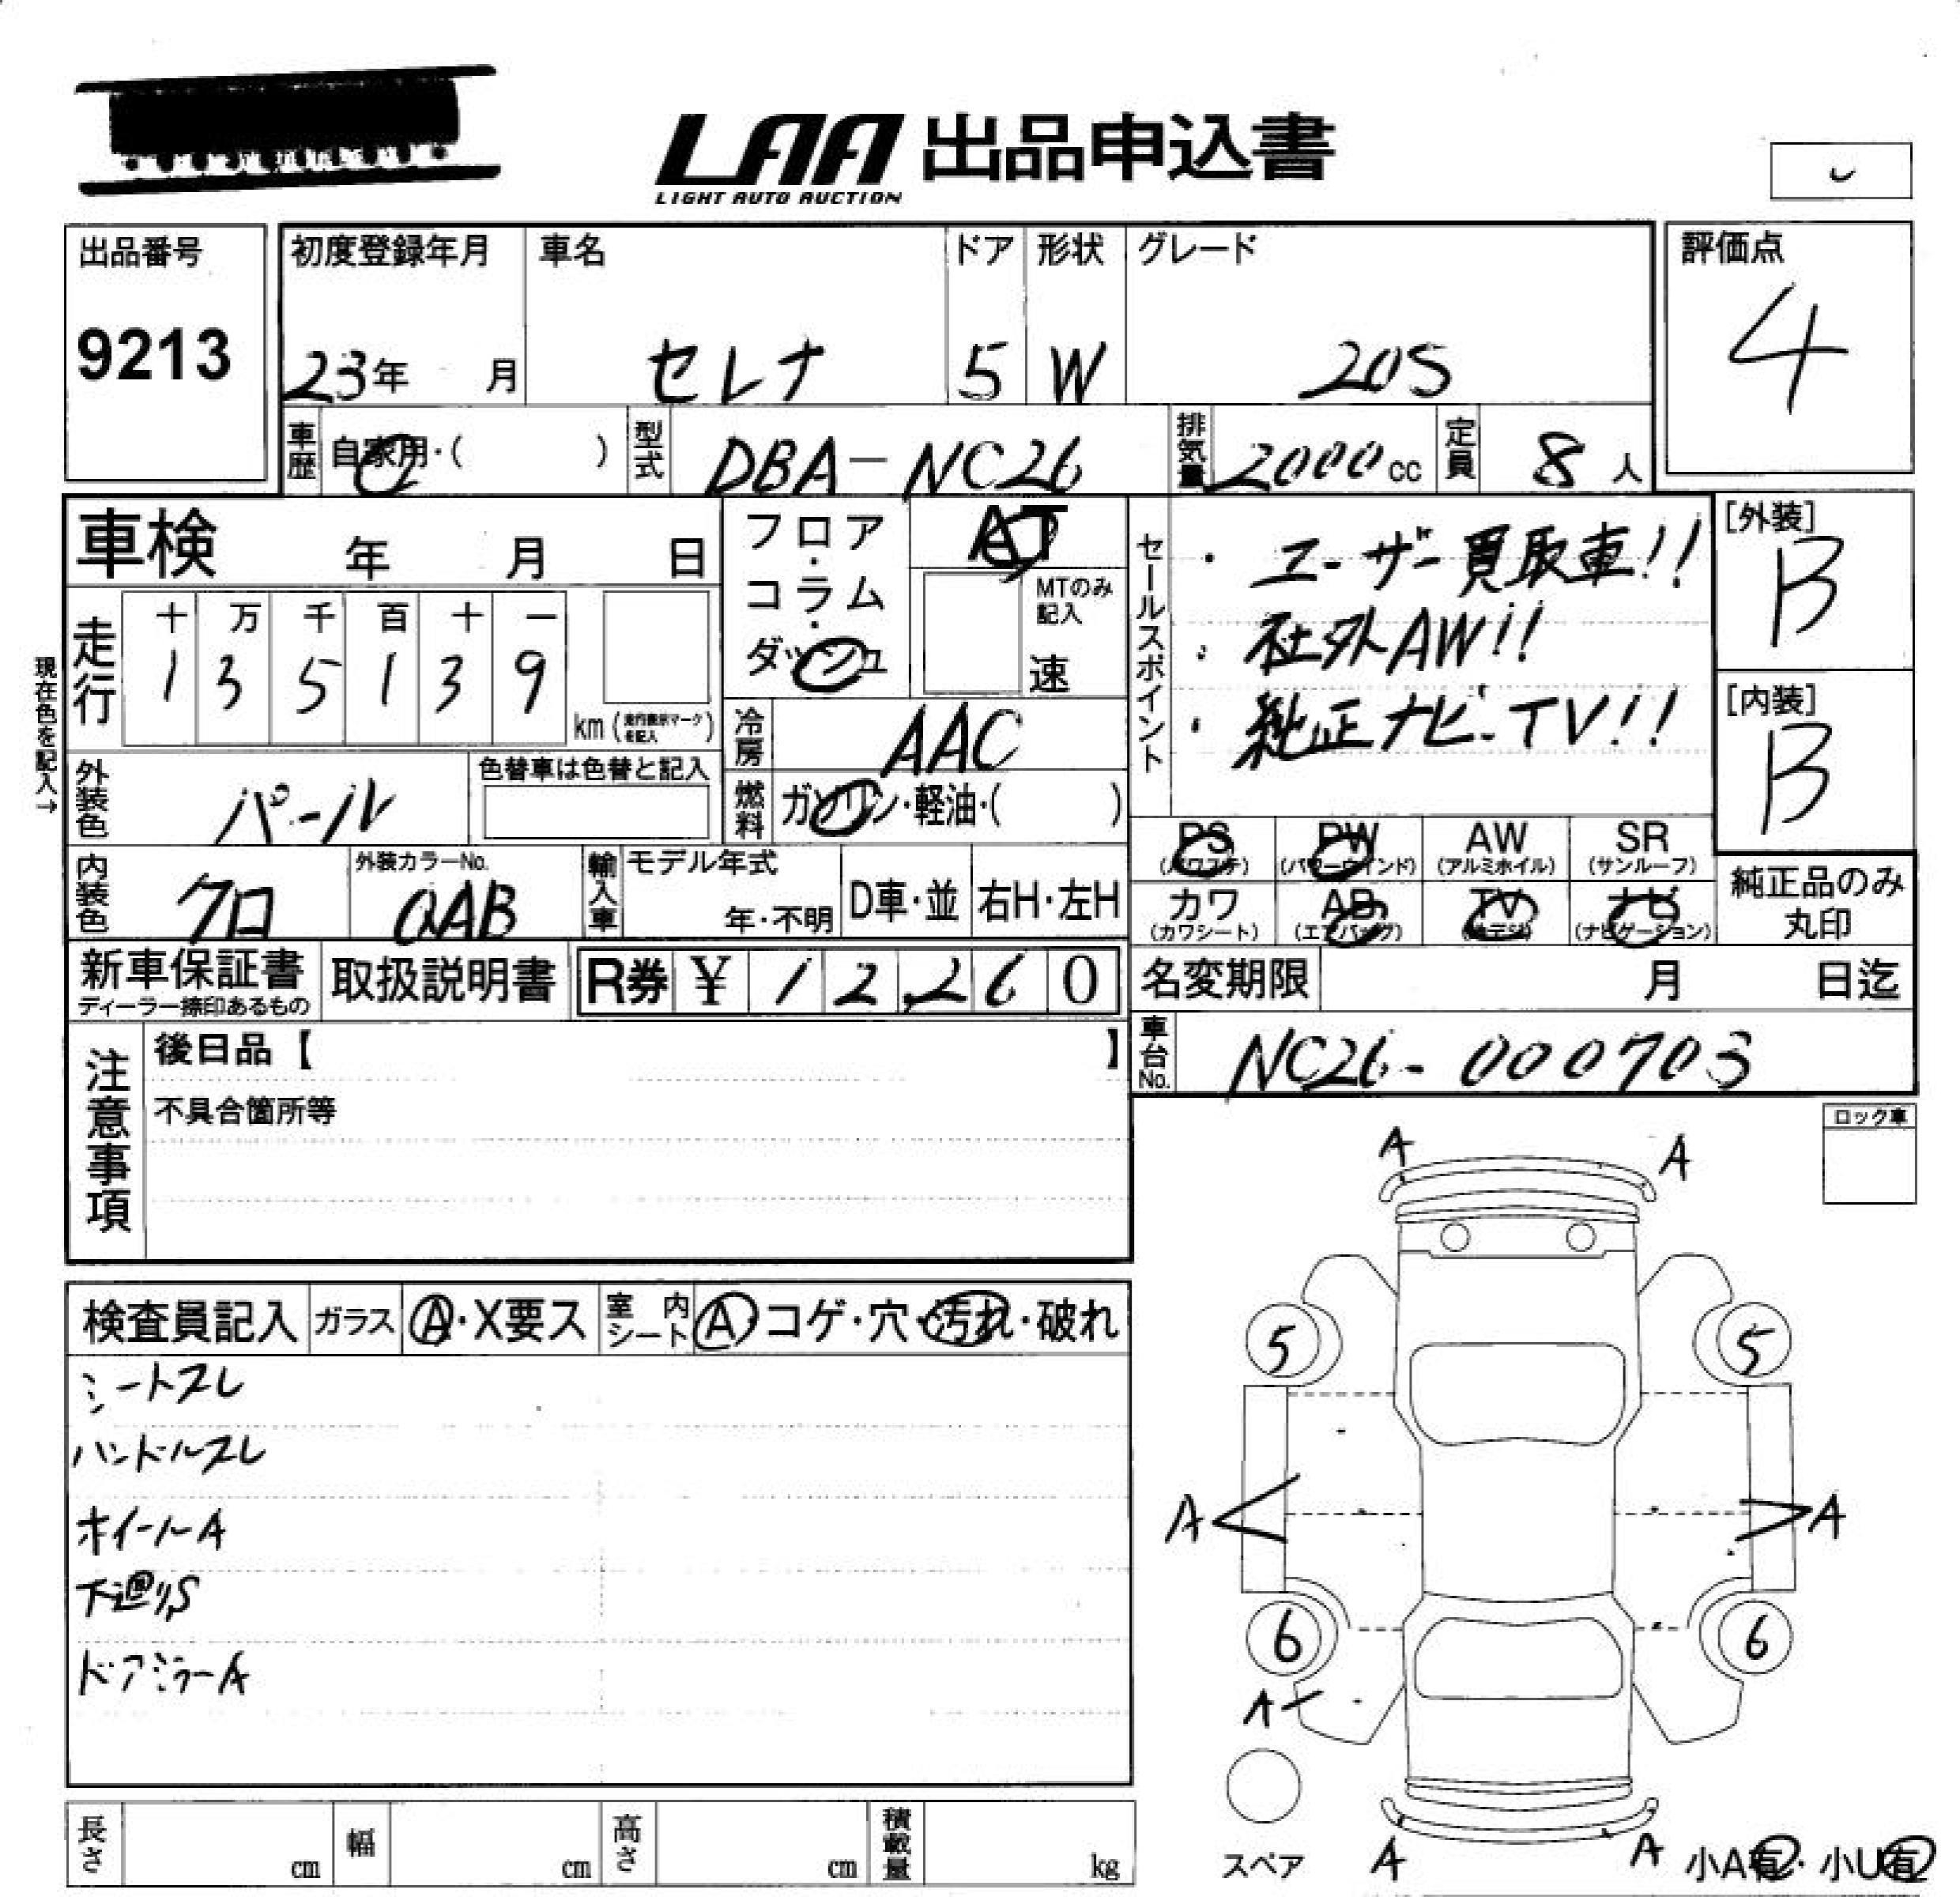 LAA 出品申込書
LIGHT AUTO AUCTION
出品番号
9213
初度登録年月
23年 月
車名
セレナ
ドア
5
形状
W
グレード
20S
評価点
4
車歴 自家用・( )
型式 DBA-NC26
排気量 2000cc
定員 8人
車検 年 月 日
フロア・コラム・ダッシュ
AT
MTのみ記入
速
セールスポイント
・ユーザー買取車!!
・社外AW!!
・純正ナビ-TV!!
[外装]
B
[内装]
B
現在色を記入→
走行
十 万 千 百 十 一
1 3 5 1 3 9
km (走行表示マークを記入)
冷房 AAC
外装色 パール
色替車は色替と記入
燃料 ガソリン・軽油・( )
内装色 クロ
外装カラーNo.
QAB
輸入車 モデル年式
年・不明
D車・並
右H・左H
PS (パワステ)
PW (パワーウインド)
AW (アルミホイル)
SR (サンルーフ)
カワ (カワシート)
AB (エアバッグ)
TV
ナビ (ナビゲーション)
純正品のみ丸印
新車保証書
ディーラー捺印あるもの
取扱説明書
R券 ¥ 12,260
名変期限 月 日迄
車台No. NC26-000703
注意事項
後日品【 】
不具合箇所等
ロック車
検査員記入 ガラス A・X要ス 室内シート A・コゲ・穴・汚れ・破れ
シートスレ
ハンドルスレ
ホイールA
下廻りS
ドアミラーA
A A
5 5
A A
6 6
A
スペア
A A
小A有・小U有
長さ cm 幅 cm 高さ cm 積載量 kg